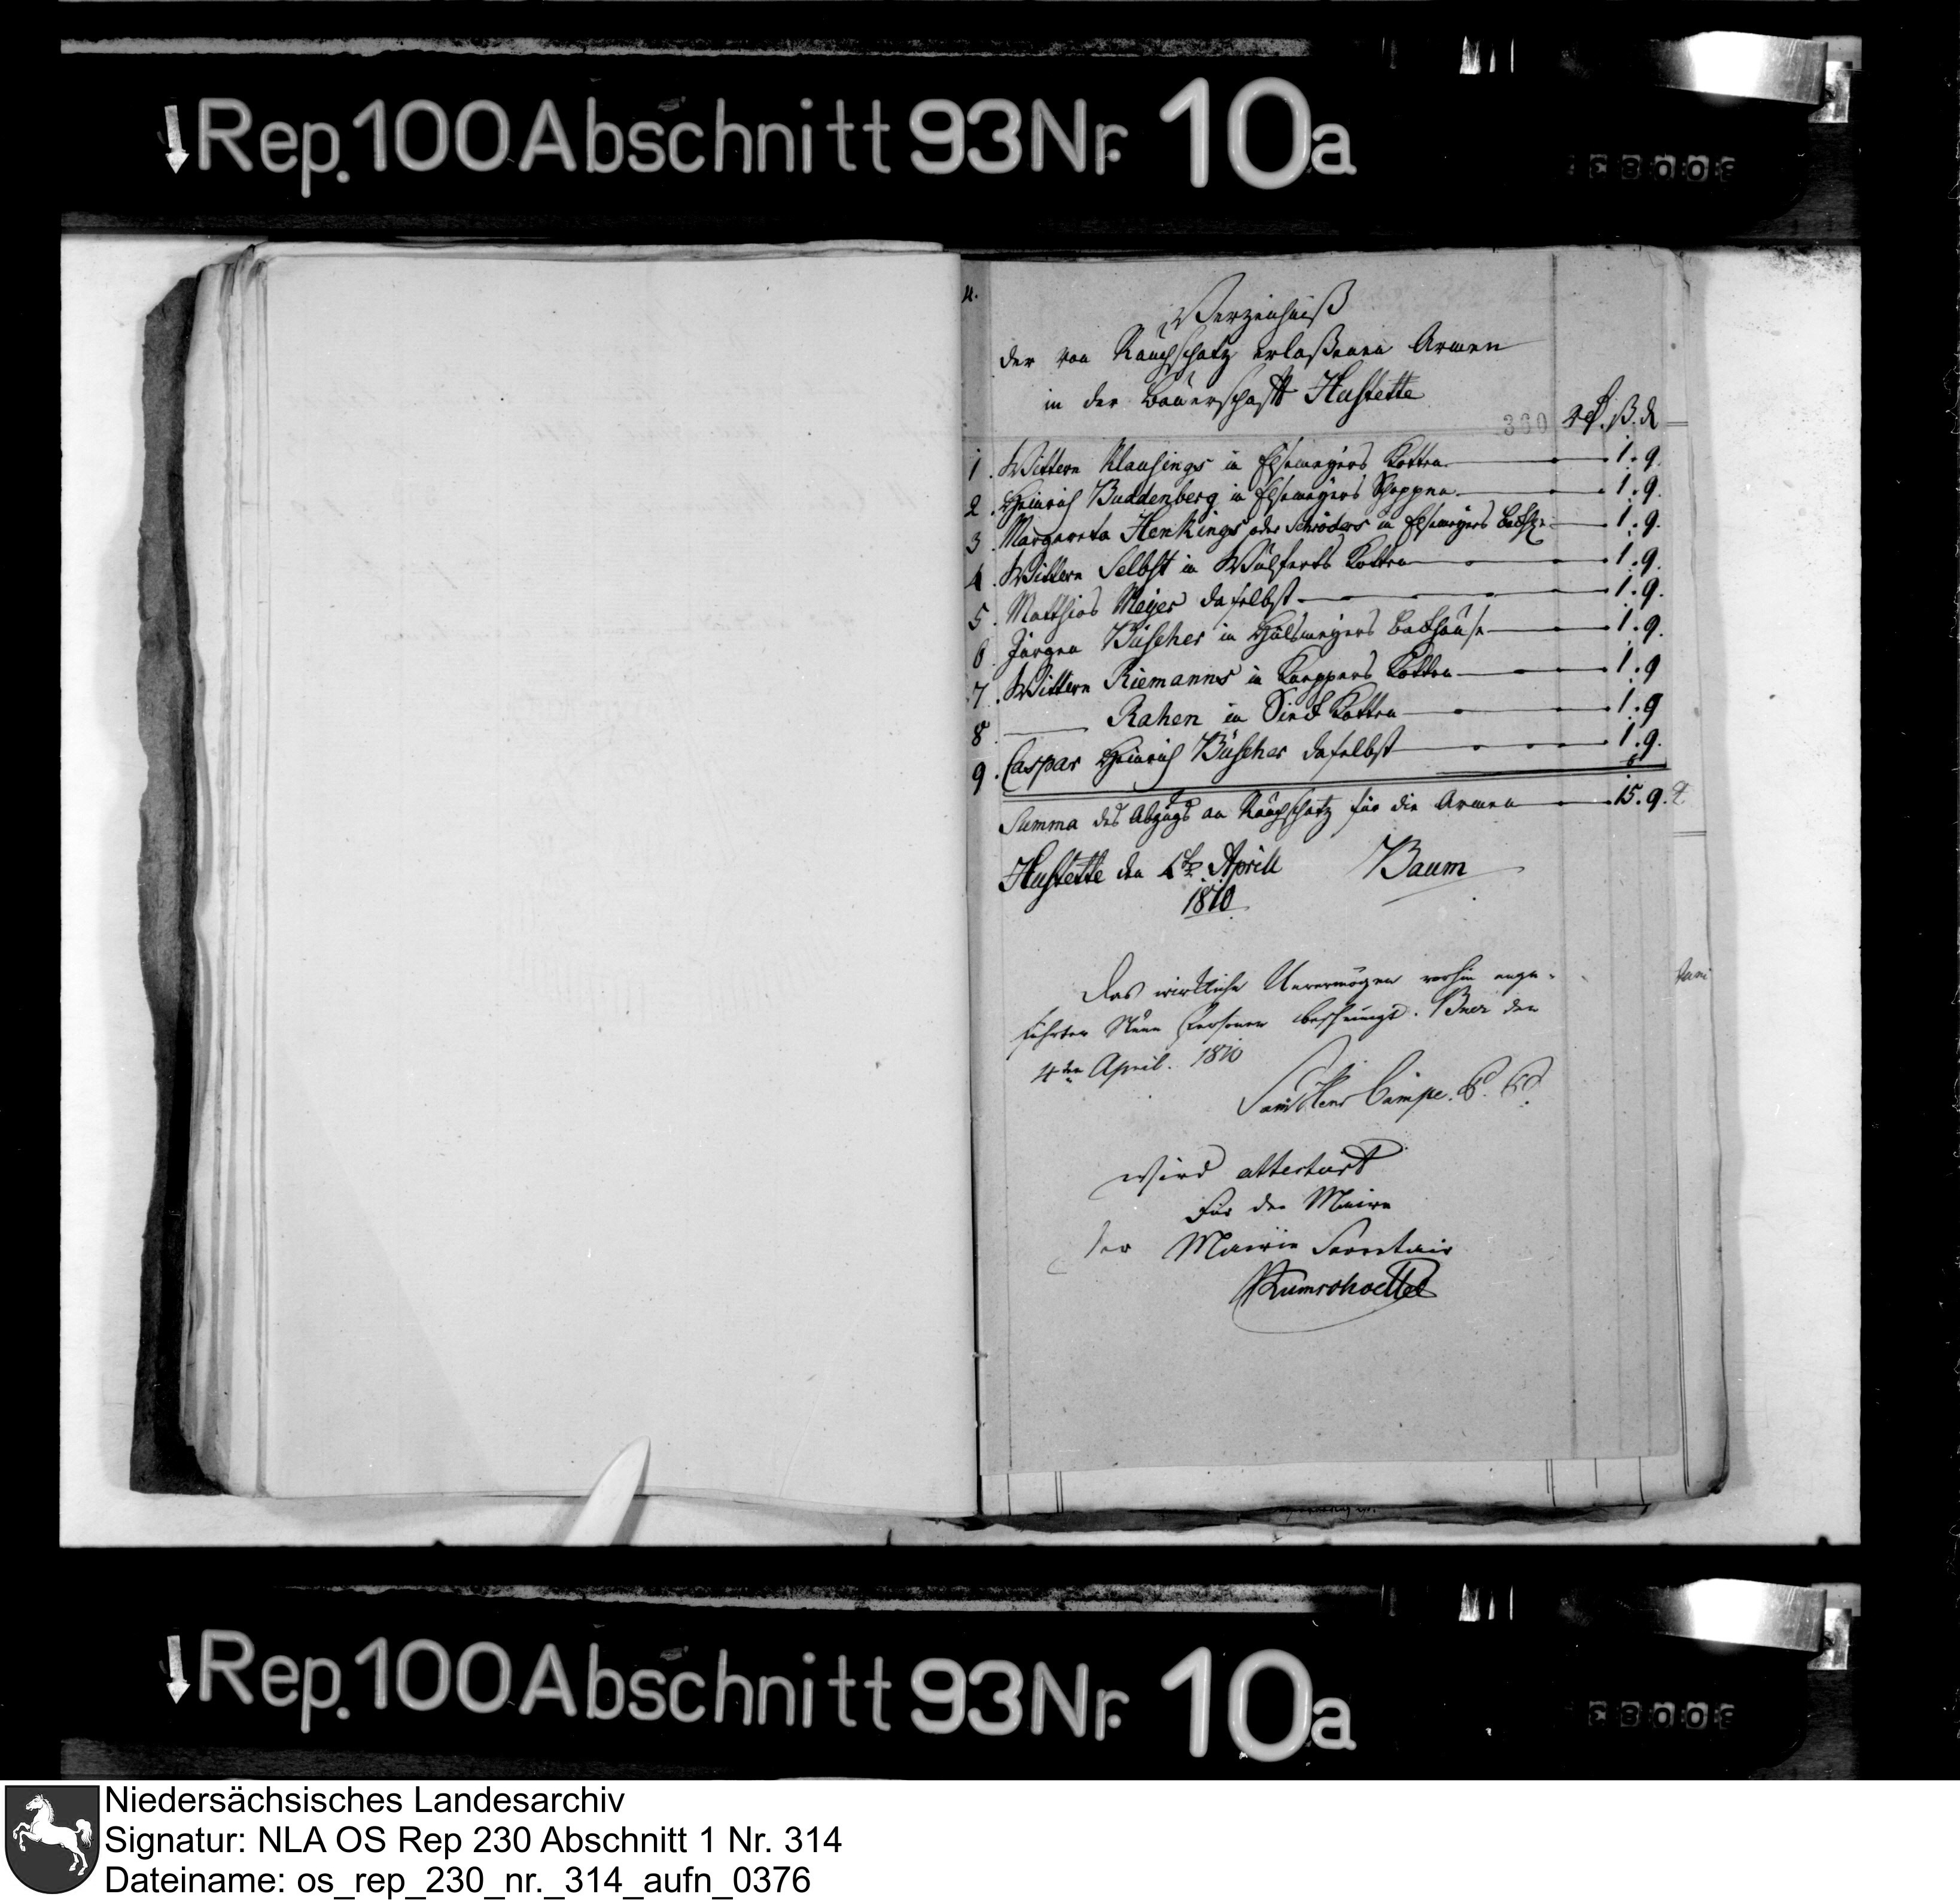 ↓Rep.100 Abschnitt 93 Nr. 10a
4.
Verzeichniß
der von Rauchschatz erlaßenen Armen
in der Bauerschaft Hustette
360
rℓ. ß. d
1. Wittwe Klausings in Elsemeyers Kotten 1. 9.
2. Heinrich Buddenberg in Elsemeyers Schoppen 1. 9.
3. Margareta Henkings oder Schröders in Elsemeyers Backhs. 1. 9.
4. Wittwe Selbst in Wulferts Kotten 1. 9.
5. Matthias Meyer daselbst 1. 9.
6. Jürgen Büscher in Hülsmeyers Backhause 1. 9.
7. Wittwe Riemanns in Kueppers Kotten 1. 9
8. — Rahen in Kotten 1. 9
9. Caspar Heinrich Büscher daselbst 1. 9.
Summa des Abzugs an Rauchschatz für die Armen 15. 9.
Hustette den April Baum
1810
Das wirkliche Unvermögen vorhin ange-
führter Neun Personen bescheinigt. Buer den
4ten April. 1810
Campe. P.
Wird attestirt
Für den Maire
der Mairie Secretair
↓Rep.100 Abschnitt 93 Nr. 10a
Niedersächsisches Landesarchiv
Signatur: NLA OS Rep 230 Abschnitt 1 Nr. 314
Dateiname: os_rep_230_nr._314_aufn_0376